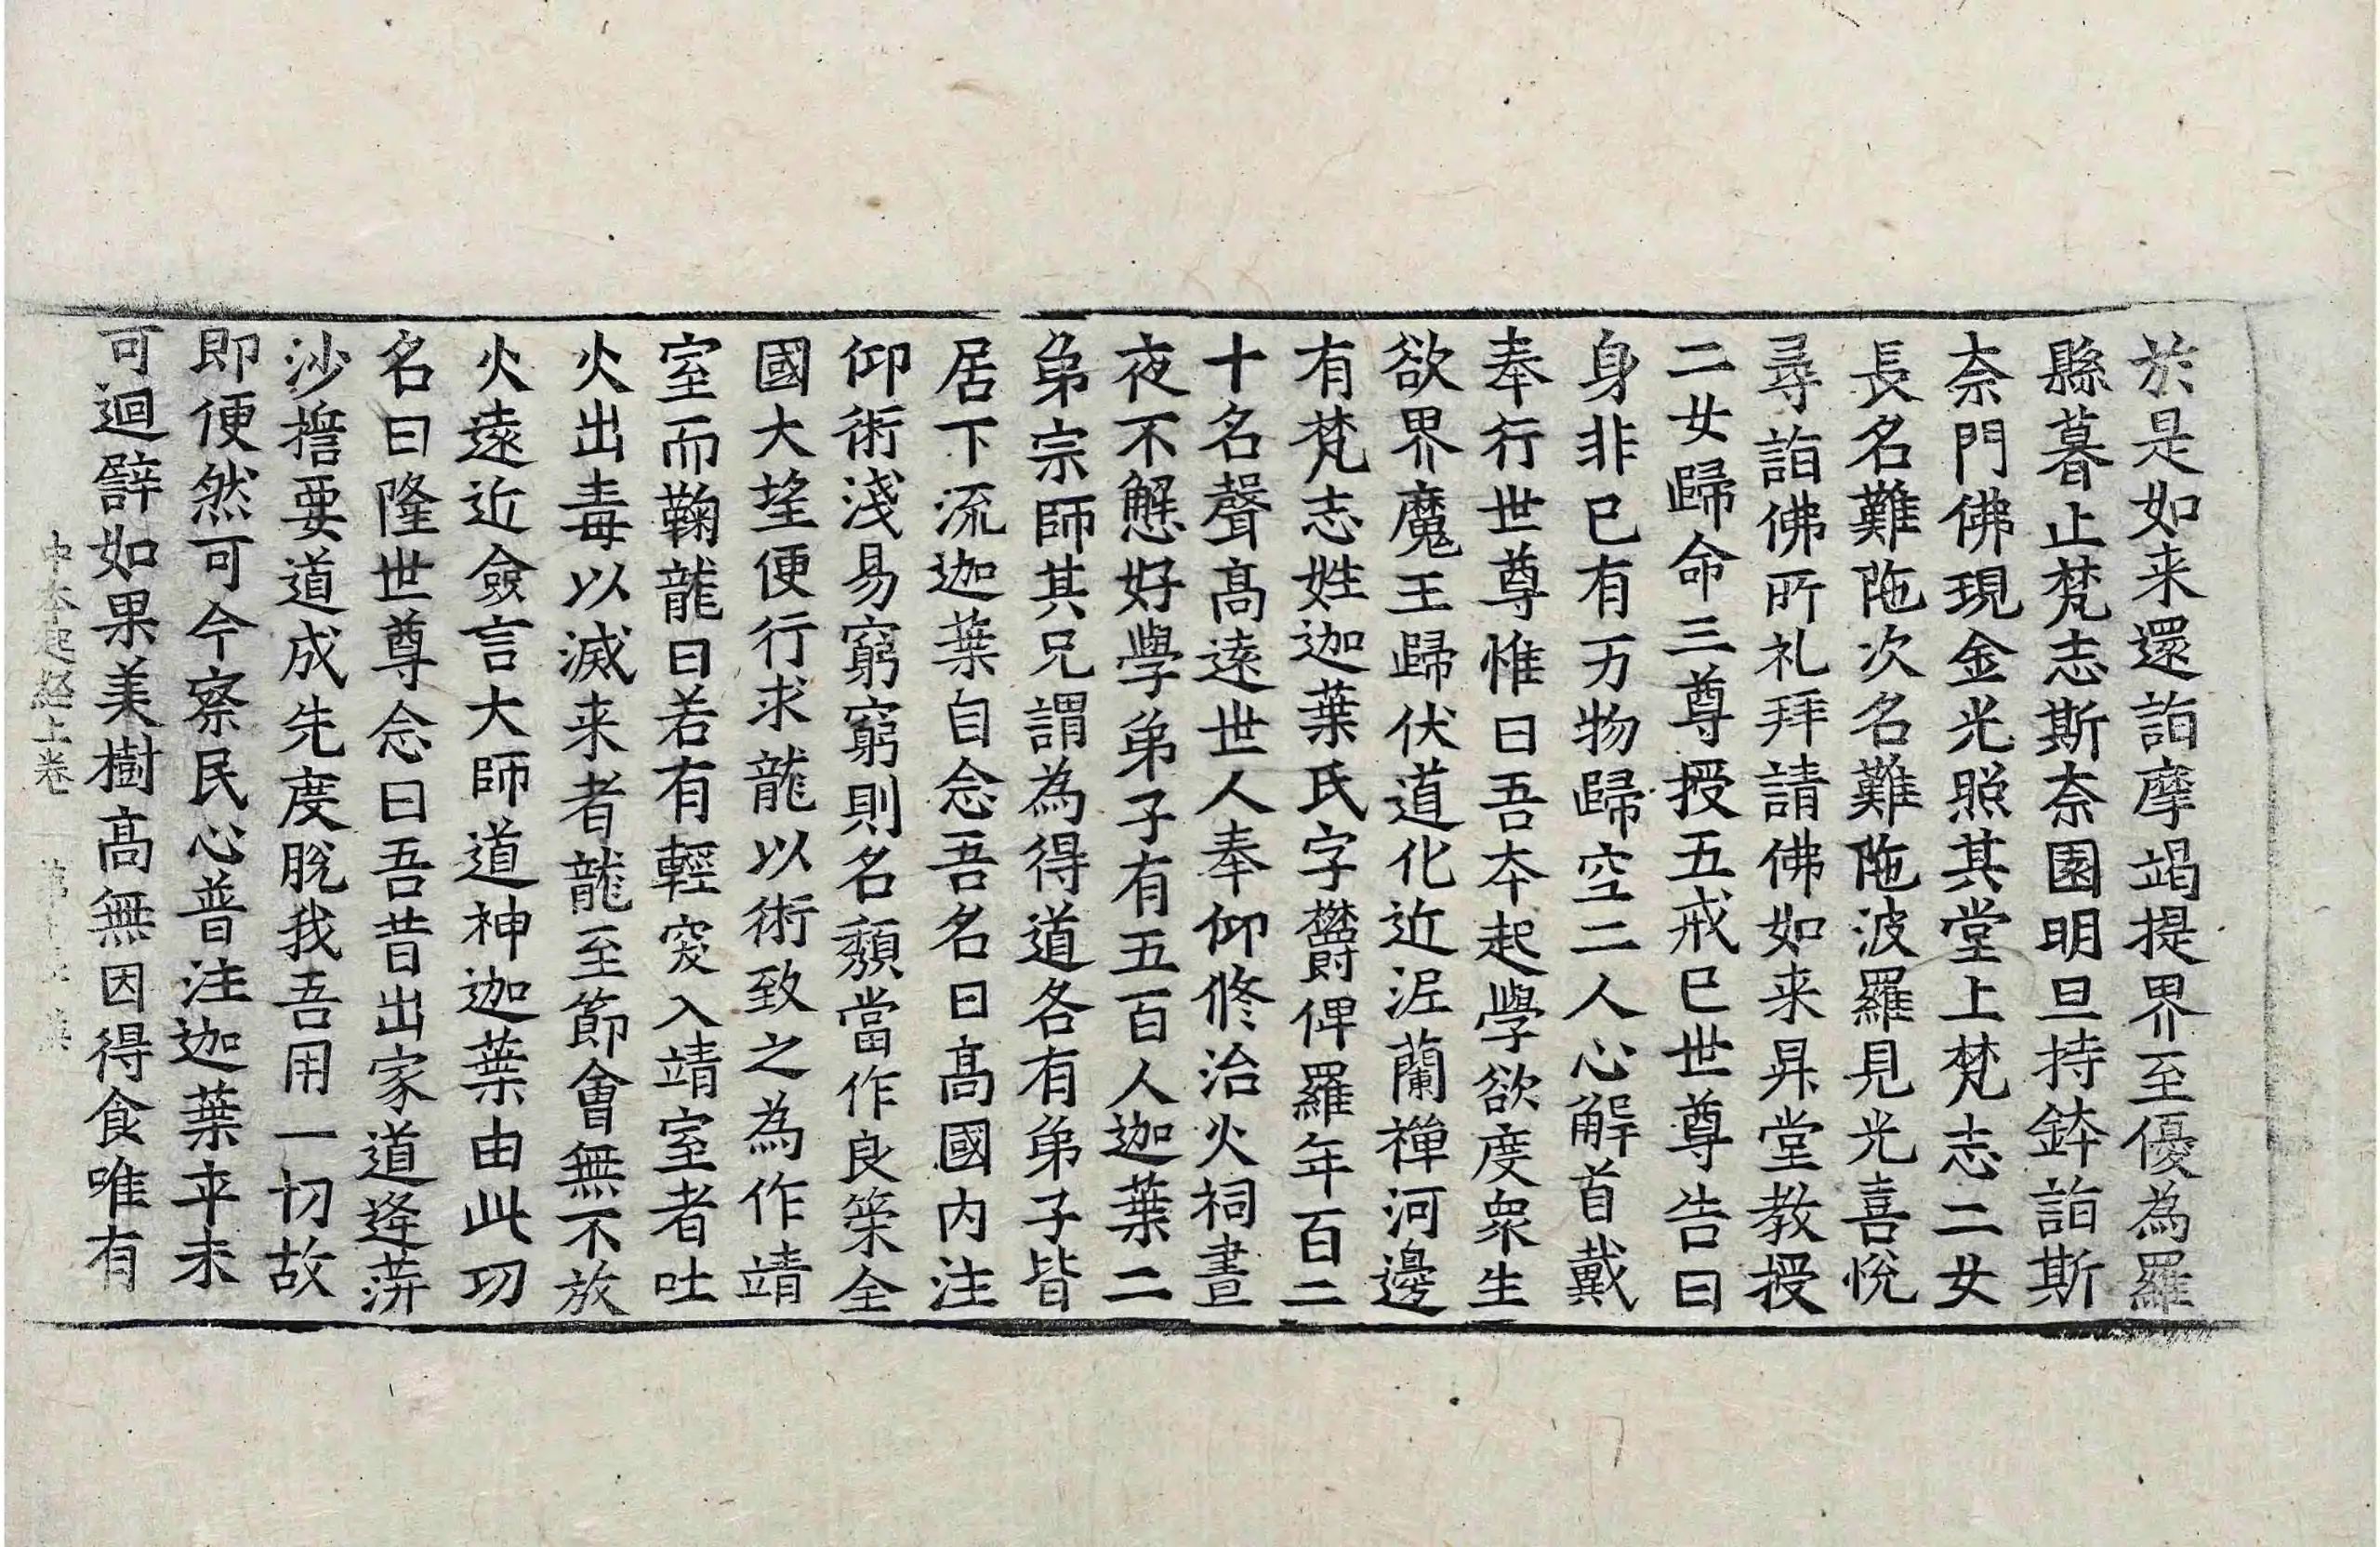 於是如来還詣摩竭提界至優為羅
縣暮止梵志斯柰園明旦持鉢詣斯
柰門佛現金光照其堂上梵志二女
長名難陁次名難陁波羅見光喜悅
尋詣佛所礼拜請佛如来昇堂教授
二女歸命三尊授五戒已世尊告曰
身非已有万物歸空二人心解首戴
奉行世尊惟曰吾本起學欲度衆生
欲界魔王歸伏道化近泥蘭禪河邊
有梵志姓迦葉氏字欝俾羅年百二
十名聲髙遠世人奉仰修治火祠晝
夜不懈好學弟子有五百人迦葉二
弟宗師其兄謂為得道各有弟子皆
居下流迦葉自念吾名日髙國內注
仰術淺易窮窮則名頹當作良策全
國大望便行求龍以術致之為作靖
室而鞠龍曰若有輕突入靖室者吐
火出毒以滅来者龍至節會無不放
火遠近僉言大師道神迦葉由此功
名日隆世尊念曰吾昔出家道逢蓱
沙擔要道成先度脫我吾用一切故
即便然可今察民心普注迦葉卒未
可迴譬如果美樹髙無因得食唯有
中本起經上卷 第